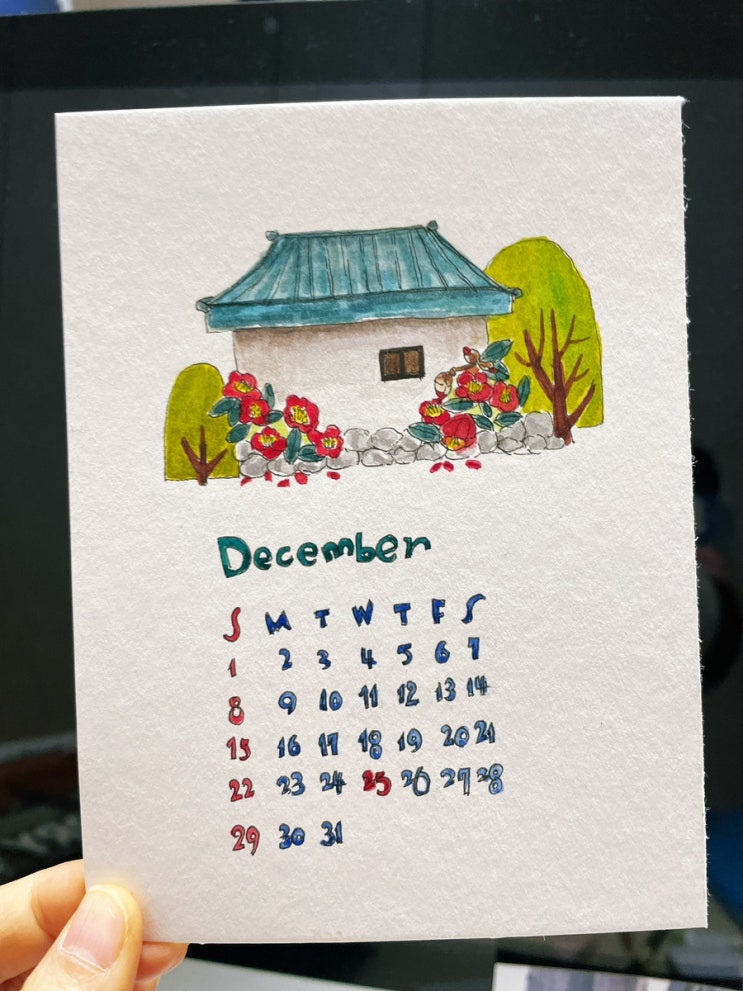 December
S M T W T F S
1 2 3 4 5 6 7
8 9 10 11 12 13 14
15 16 17 18 19 20 21
22 23 24 25 26 27 28
29 30 31